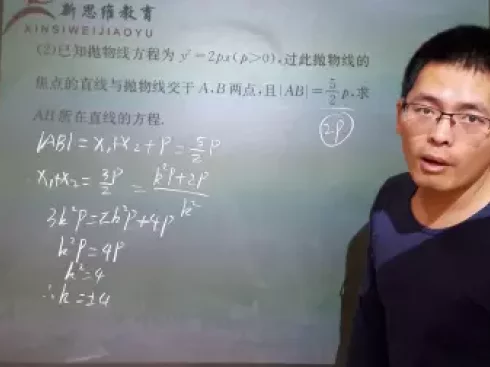 新思维教育
XINSIWEIJIAOYU
(2)已知抛物线方程为 y²=2px(p>0),过此抛物线的
焦点的直线与抛物线交于 A、B 两点,且|AB|=5/2 p,求
AB 所在直线的方程.
2p
|AB|=x₁+x₂+p=5/2 p
x₁+x₂=3p/2=(k²p+2p)/k²
3k²p=2k²p+4p
k²p=4p
k²=4
∴k=±4